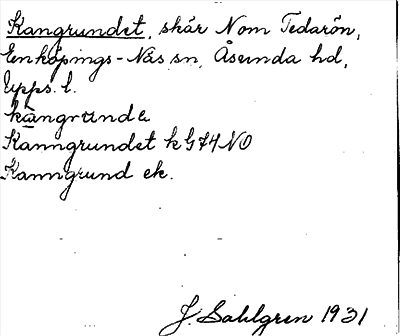 Kangrundet, skär N om Tedarön,
Enköpings-Näs sn, Åsunda hd,
Upps. l.
kangrunde
Kanngrundet k G74 NO
Kanngrund ek.
J. Sahlgren 1931